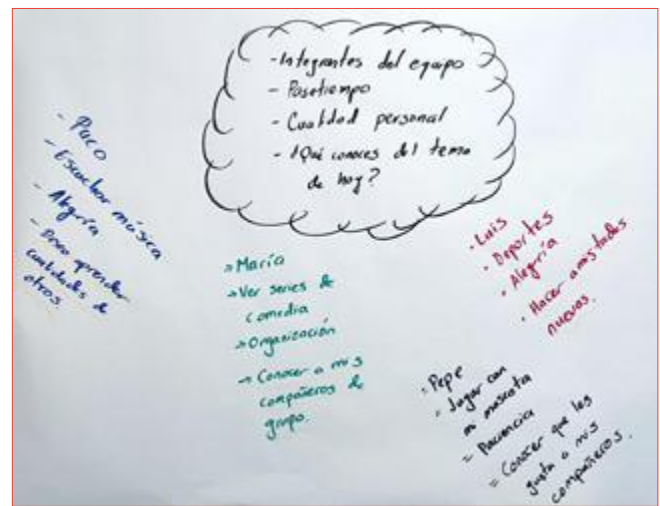 - Integrantes del equipo
- Pasatiempo
- Cualidad personal
- ¿Qué conoces del tema
de hoy?
- Paco
- Escuchar música
- Alegría
- Deseo aprender
cualidades de
otros.
→ María
→ Ver series de
comedia
→ Organización
→ Conocer a mis
compañeros de
grupo.
- Luis
- Deportes
- Alegría
- Hacer amistades
nuevas.
- Pepe
- Jugar con
mi mascota
- Paciencia
- Conocer que les
gusta a mis
compañeros.